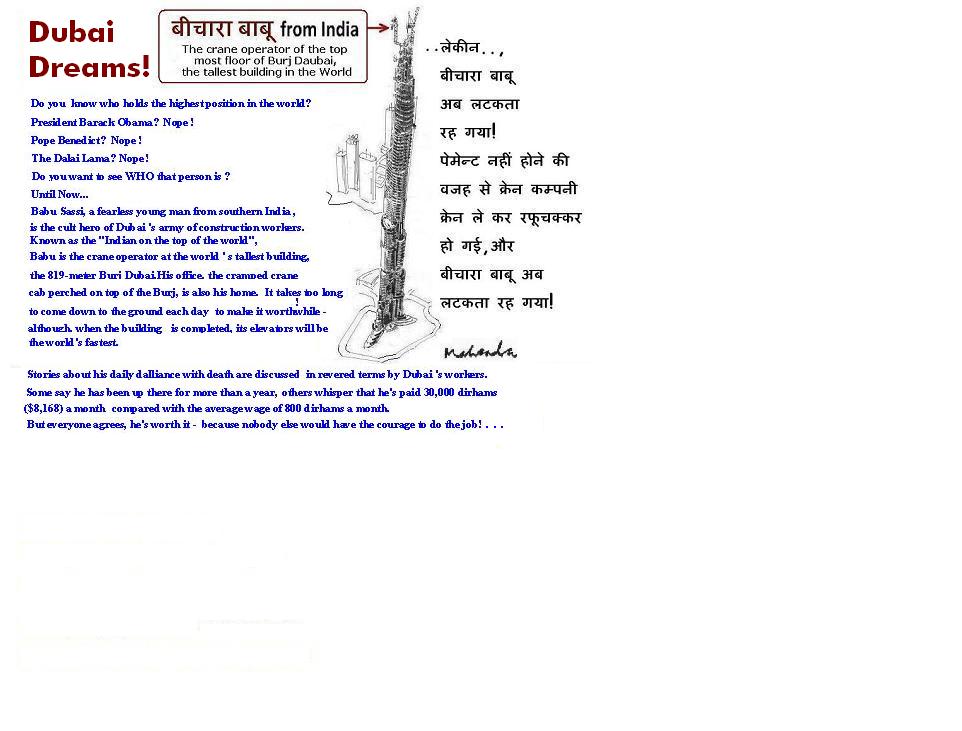 Dubai
Dreams!
बीचारा बाबू from India
The crane operator of the top
most floor of Burj Daubai,
the tallest building in the World
Do you know who holds the highest position in the world?
President Barack Obama? Nope !
Pope Benedict? Nope !
The Dalai Lama? Nope!
Do you want to see WHO that person is ?
Until Now...
Babu Sassi, a fearless young man from southern India ,
is the cult hero of Dubai 's army of construction workers.
Known as the "Indian on the top of the world",
Babu is the crane operator at the world ' s tallest building,
the 819-meter Buri Dubai.His office. the cramped crane
cab perched on top of the Burj, is also his home. It takes too long
!
to come down to the ground each day to make it worthwhile -
although. when the building is completed, its elevators will be
the world's fastest.
..लेकीन..,
बीचारा बाबू
अब लटकता
रह गया!
पेमेन्ट नहीं होने की
वजह से क्रेन कम्पनी
क्रेन ले कर रफूचक्कर
हो गई,और
बीचारा बाबू अब
लटकता रह गया!
Mahendra
Stories about his daily dalliance with death are discussed in revered terms by Dubai 's workers.
Some say he has been up there for more than a year, others whisper that he's paid 30,000 dirhams
($8,168) a month compared with the average wage of 800 dirhams a month.
But everyone agrees, he's worth it - because nobody else would have the courage to do the job! . . .